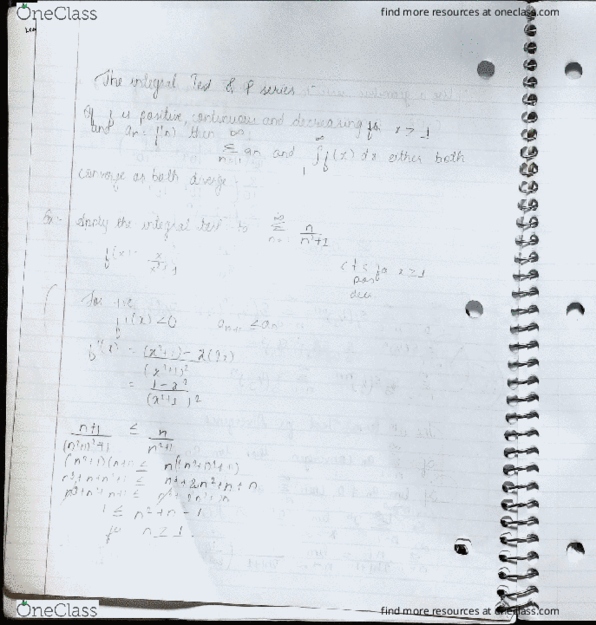 OneClass
find more resources at oneclass.com
The integral Test & P series :-
If f is positive, continuous and decreasing for x ≥ 1
and an = f(n) then
∞ Σ n=1 an and ∞ ∫ 1 f(x) dx either both
converge or both diverge.
Ex:- Apply the integral test to ∞ Σ n=1 n/n²+1
f(x) = x/x²+1
cts for x ≥ 1
pos
dec
for
f'(x) < 0 an+1 ≤ an
f'(x) = (x²+1) - x(2x) / (x²+1)²
= 1-x² / (x²+1)²
n+1 / ≤ n / n²+1
(n²+1)(n+1) ≤
1 ≤ n² + n - 1
for n ≥ 1.
OneClass
find more resources at oneclass.com